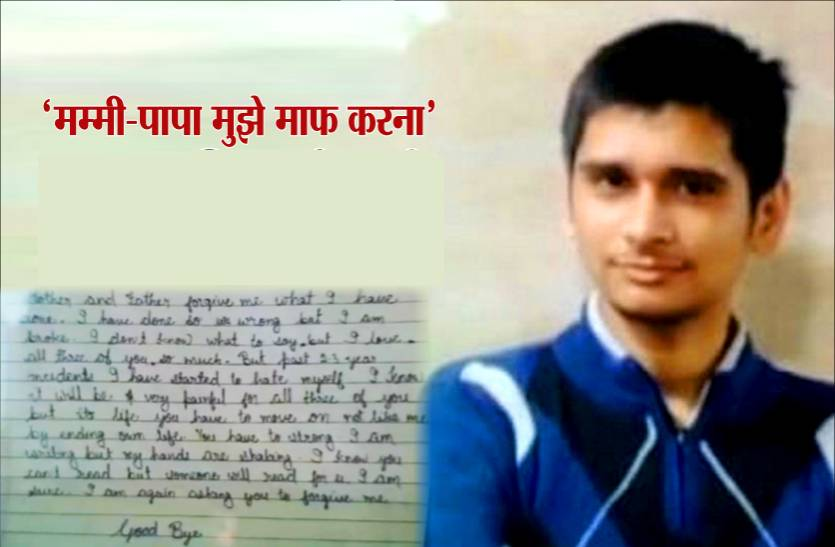 ‘मम्मी-पापा मुझे माफ करना’
Mother and Father forgive me what I have
done. I have done so wrong but I am
broke. I don't know what to say. but I love
all three of you so much. But past 2-3 year
incidents I have started to hate myself I know
it will be very painful for all three of you
but its life you have to move on not like me
by ending own life You have to strong I am
writing but my hands are shaking. I know you
cant read but someone will read for u. I am
sure. I am again asking you to forgive me
Good Bye